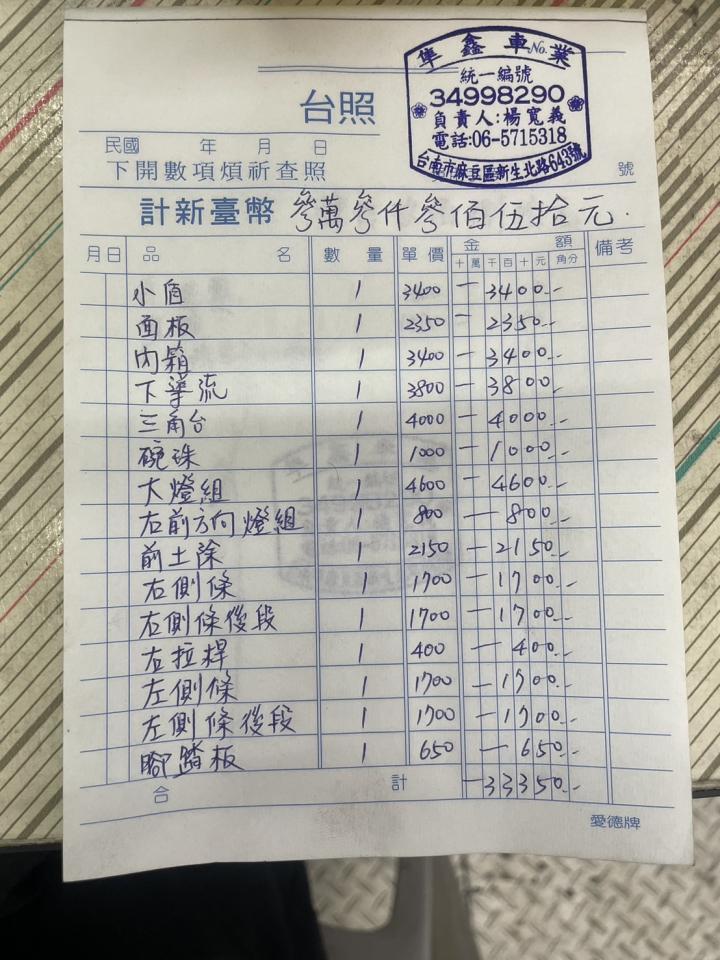 隼鑫車業
No.
統一編號
34998290
負責人:楊寬義
電話:06-5715318
台南市麻豆區新生北路643號
台照
民國 年 月 日
下開數項煩祈查照 號
計新臺幣 參萬參仟參佰伍拾元.
月 日 品 名 數 量 單 價 金 額 備考
十 萬 千 百 十 元 角分
小盾 1 3400 一 3400.-
面板 1 2350 一 2350.-
內箱 1 3400 一 3400.-
下導流 1 3800 一 3800.-
三角台 1 4000 一 4000.-
碗珠 1 1000 一 1000.-
大燈組 1 4600 一 4600.-
右前方向燈組 1 800 一 800.-
前土除 1 2150 一 2150.-
右側條 1 1700 一 1700.-
右側條後段 1 1700 一 1700.-
右拉桿 1 400 一 400.-
左側條 1 1700 一 1700.-
左側條後段 1 1700 一 1700.-
腳踏板 1 650 一 650.-
合 計 一33350.-
愛德牌